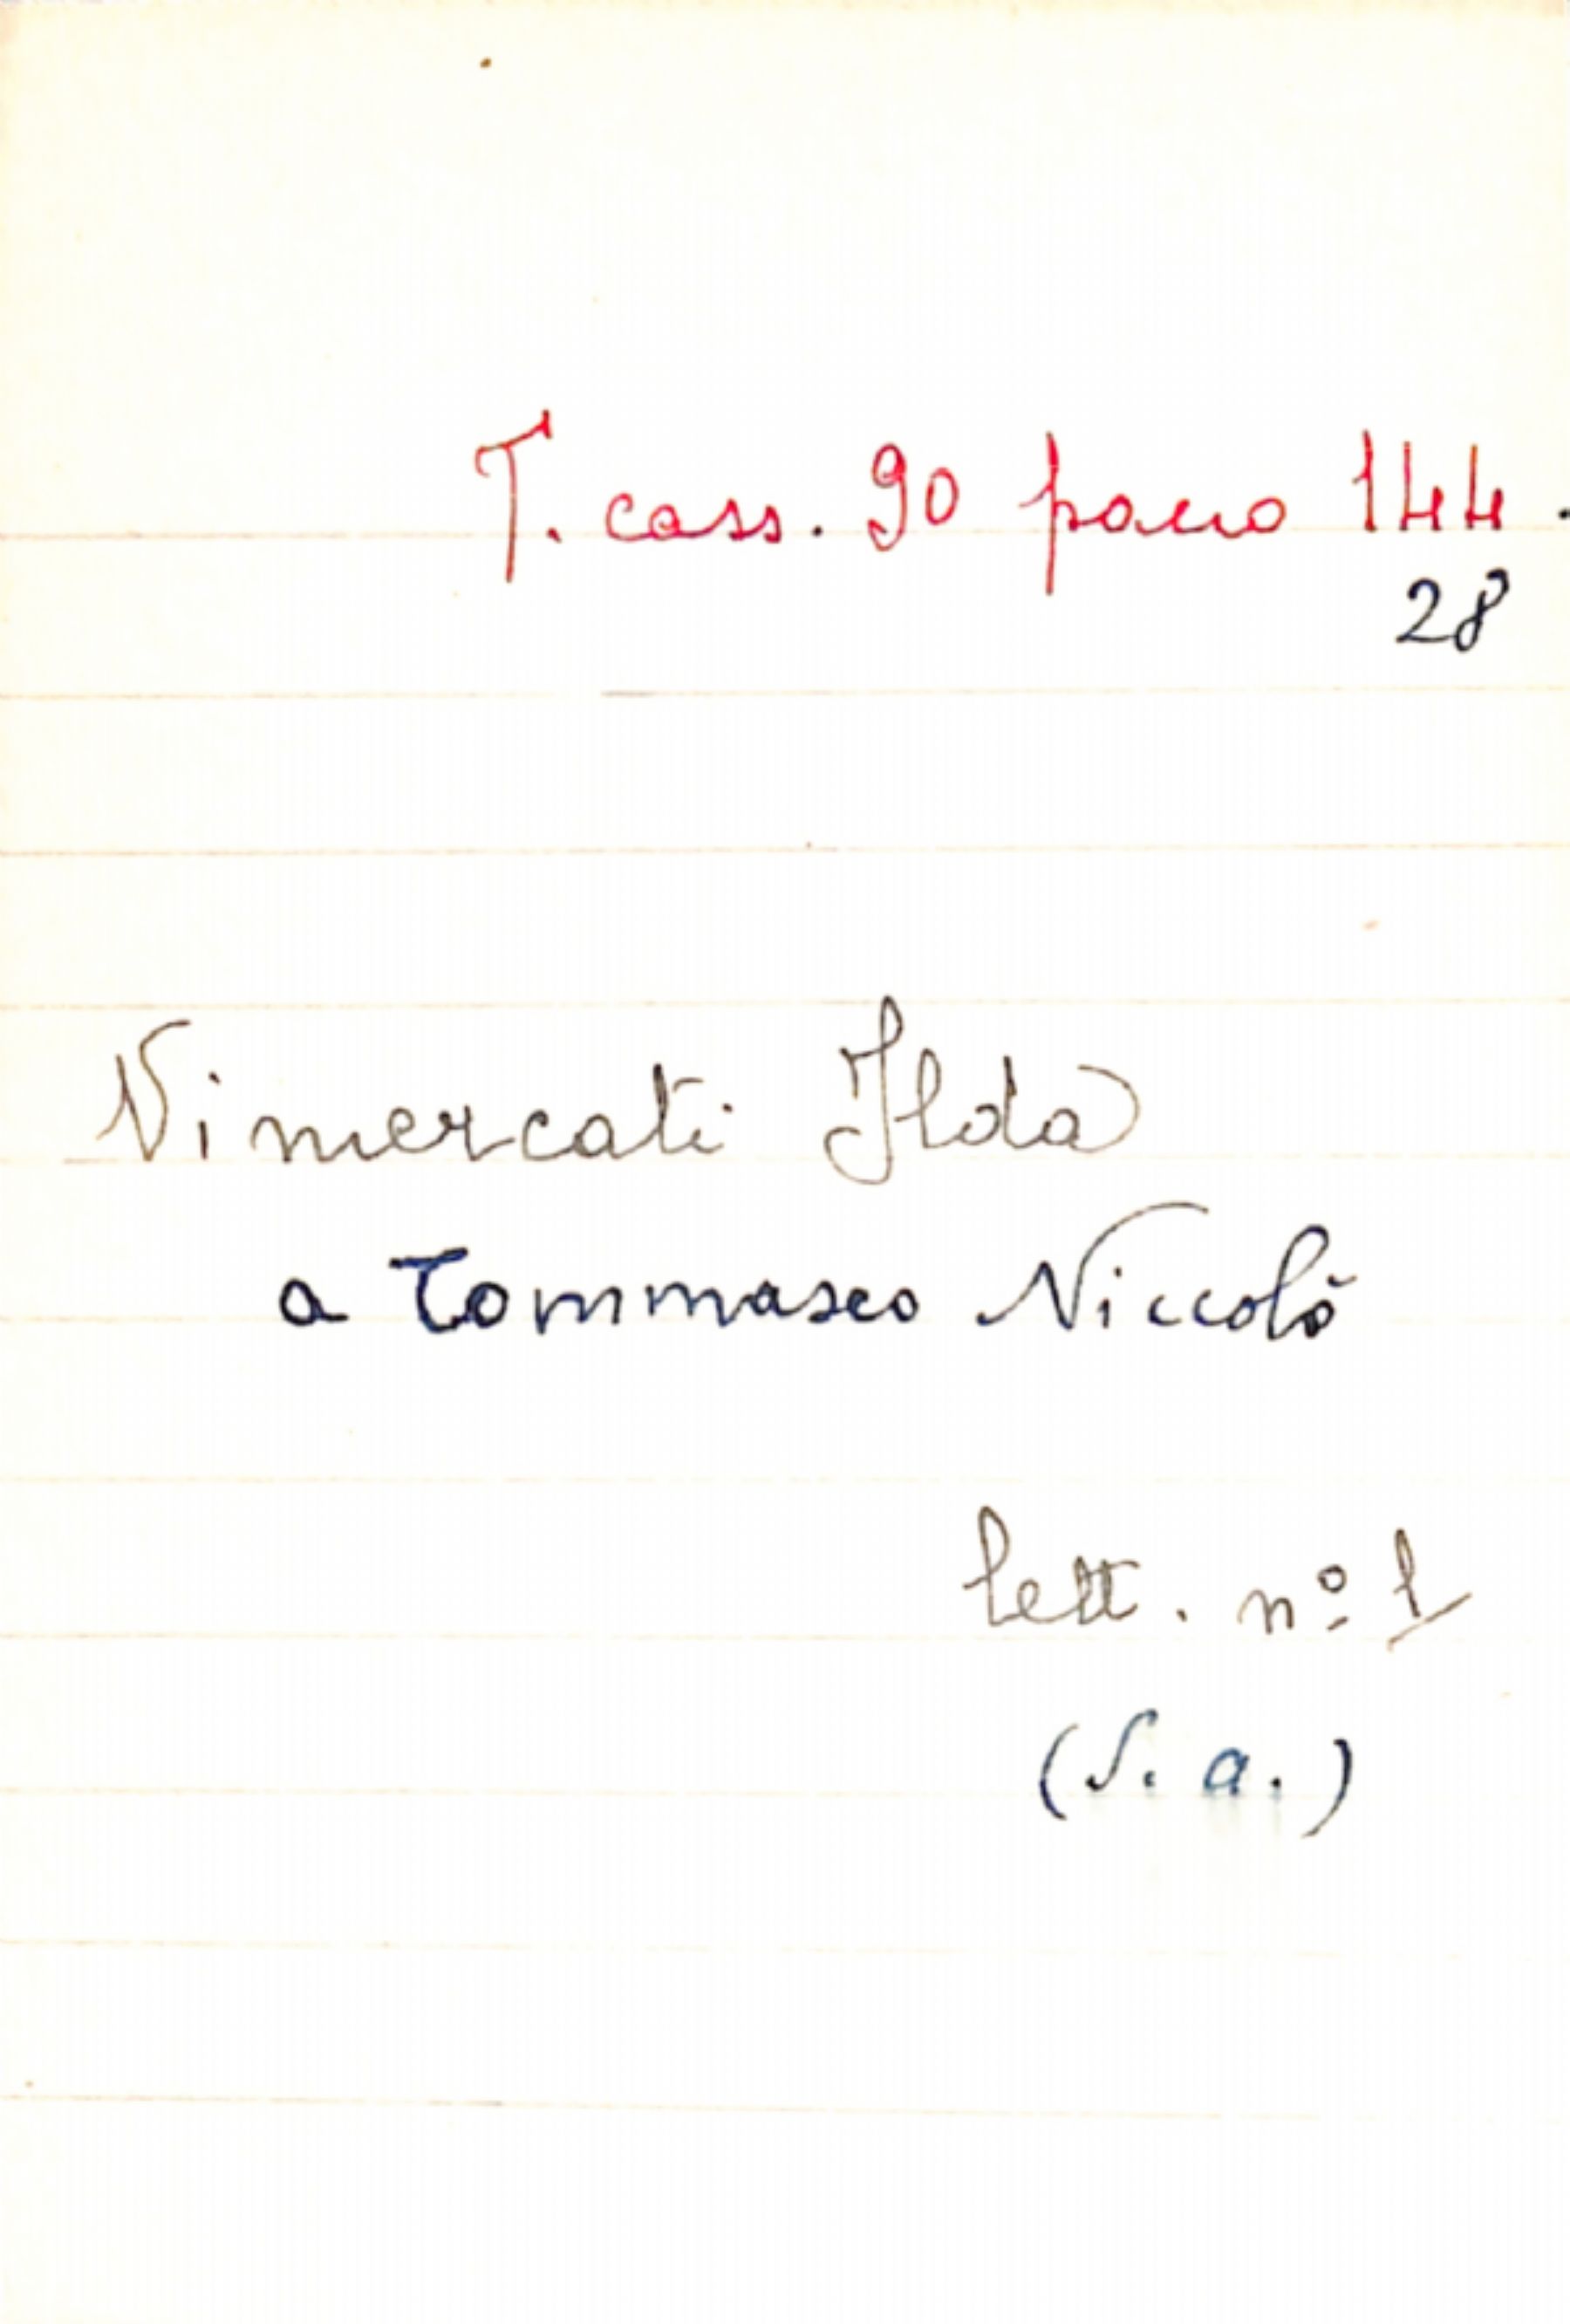 T. cass. 90 pacco 144.
28
Vimercati Ilda
a Tommaseo Niccolò
lett. nº 1
(S. a.)